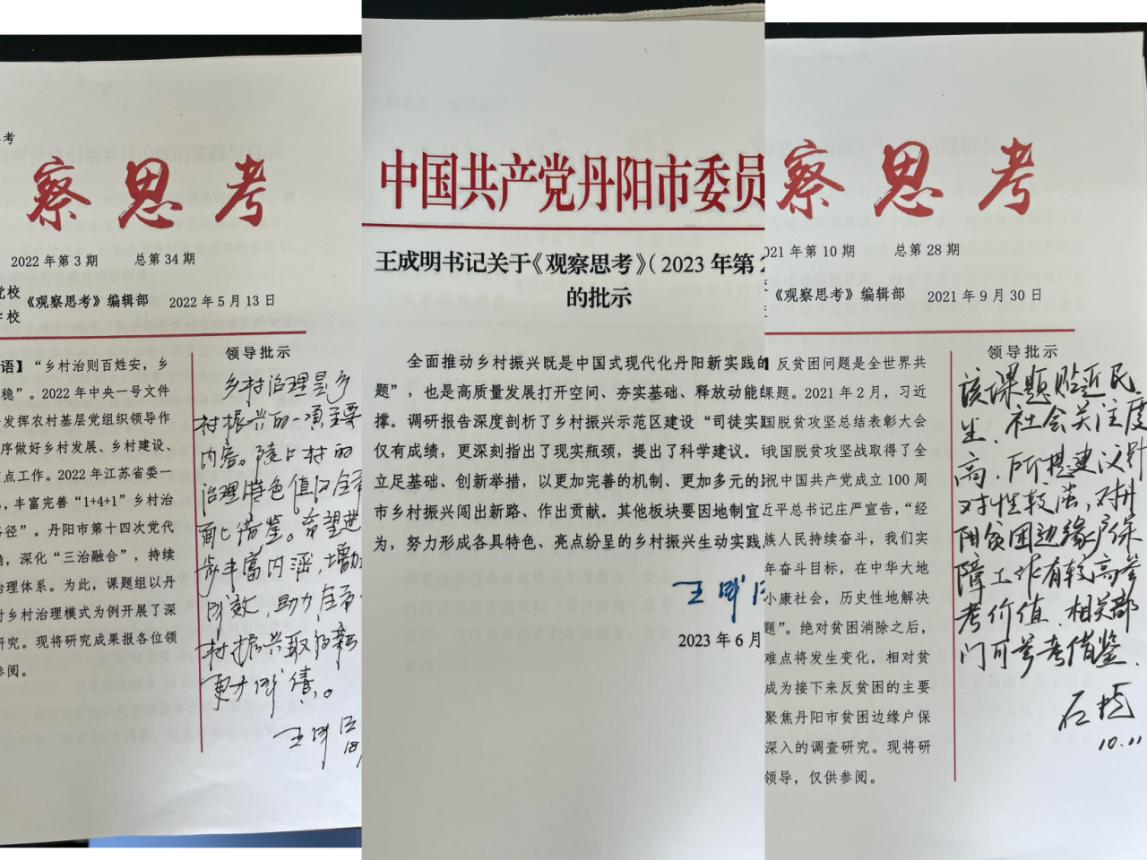 考
察思考
2022 年第 3 期 总第 34 期
党校
《观察思考》编辑部 2022 年 5 月 13 日
校
语】 “乡村治则百姓安，乡
稳”。2022 年中央一号文件
发挥农村基层党组织领导作
序做好乡村发展、乡村建设、
点工作。2022 年江苏省委一
，丰富完善“1+4+1”乡村治
径”。丹阳市第十四次党代
，深化“三治融合”，持续
治理体系。为此，课题组以丹
村乡村治理模式为例开展了深
研究。现将研究成果报各位领
参阅。
领导批示
乡村治理是乡
村振兴的一项主要
内容。陵口村的
治理特色值得全市
面上借鉴。希望进
步丰富内涵，增加
成效，助力全市
村振兴取得新
更大成绩。
王成
中国共产党丹阳市委员
王成明书记关于《观察思考》（2023 年第 2
的批示
全面推动乡村振兴既是中国式现代化丹阳新实践的
题”，也是高质量发展打开空间、夯实基础、释放动能的
撑。调研报告深度剖析了乡村振兴示范区建设“司徒实践
仅有成绩，更深刻指出了现实瓶颈，提出了科学建议。
立足基础、创新举措，以更加完善的机制、更加多元的
市乡村振兴闯出新路、作出贡献。其他板块要因地制宜
为，努力形成各具特色、亮点纷呈的乡村振兴生动实践
王成
2023 年 6 月
察思考
021 年第 10 期 总第 28 期
《观察思考》编辑部 2021 年 9 月 30 日
反贫困问题是全世界共
课题。2021 年 2 月，习近
国脱贫攻坚总结表彰大会
我国脱贫攻坚战取得了全
祝中国共产党成立 100 周
近平总书记庄严宣告，“经
族人民持续奋斗，我们实
年奋斗目标，在中华大地
小康社会，历史性地解决
题”。绝对贫困消除之后，
难点将发生变化，相对贫
成为接下来反贫困的主要
聚焦丹阳市贫困边缘户保
深入的调查研究。现将研
领导，仅供参阅。
领导批示
该课题贴近民
生，社会关注度
高，所提建议针
对性较强，对丹
阳贫困边缘户保
障工作有较高参
考价值，相关部
门可参考借鉴。
10.11